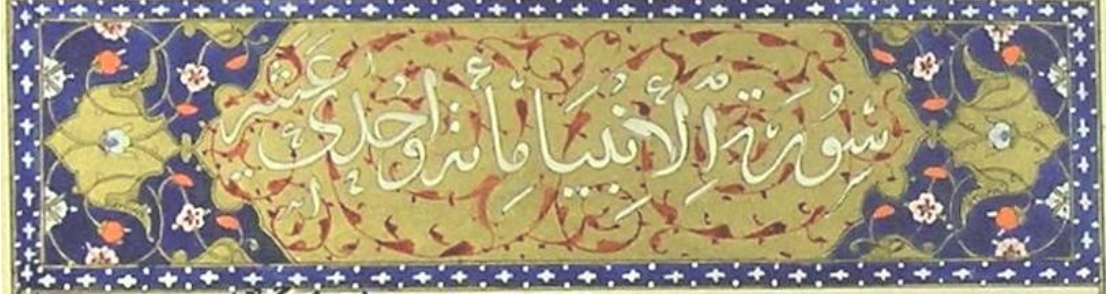 سُورَة الأنبيَا مِأة واحدى عَشر